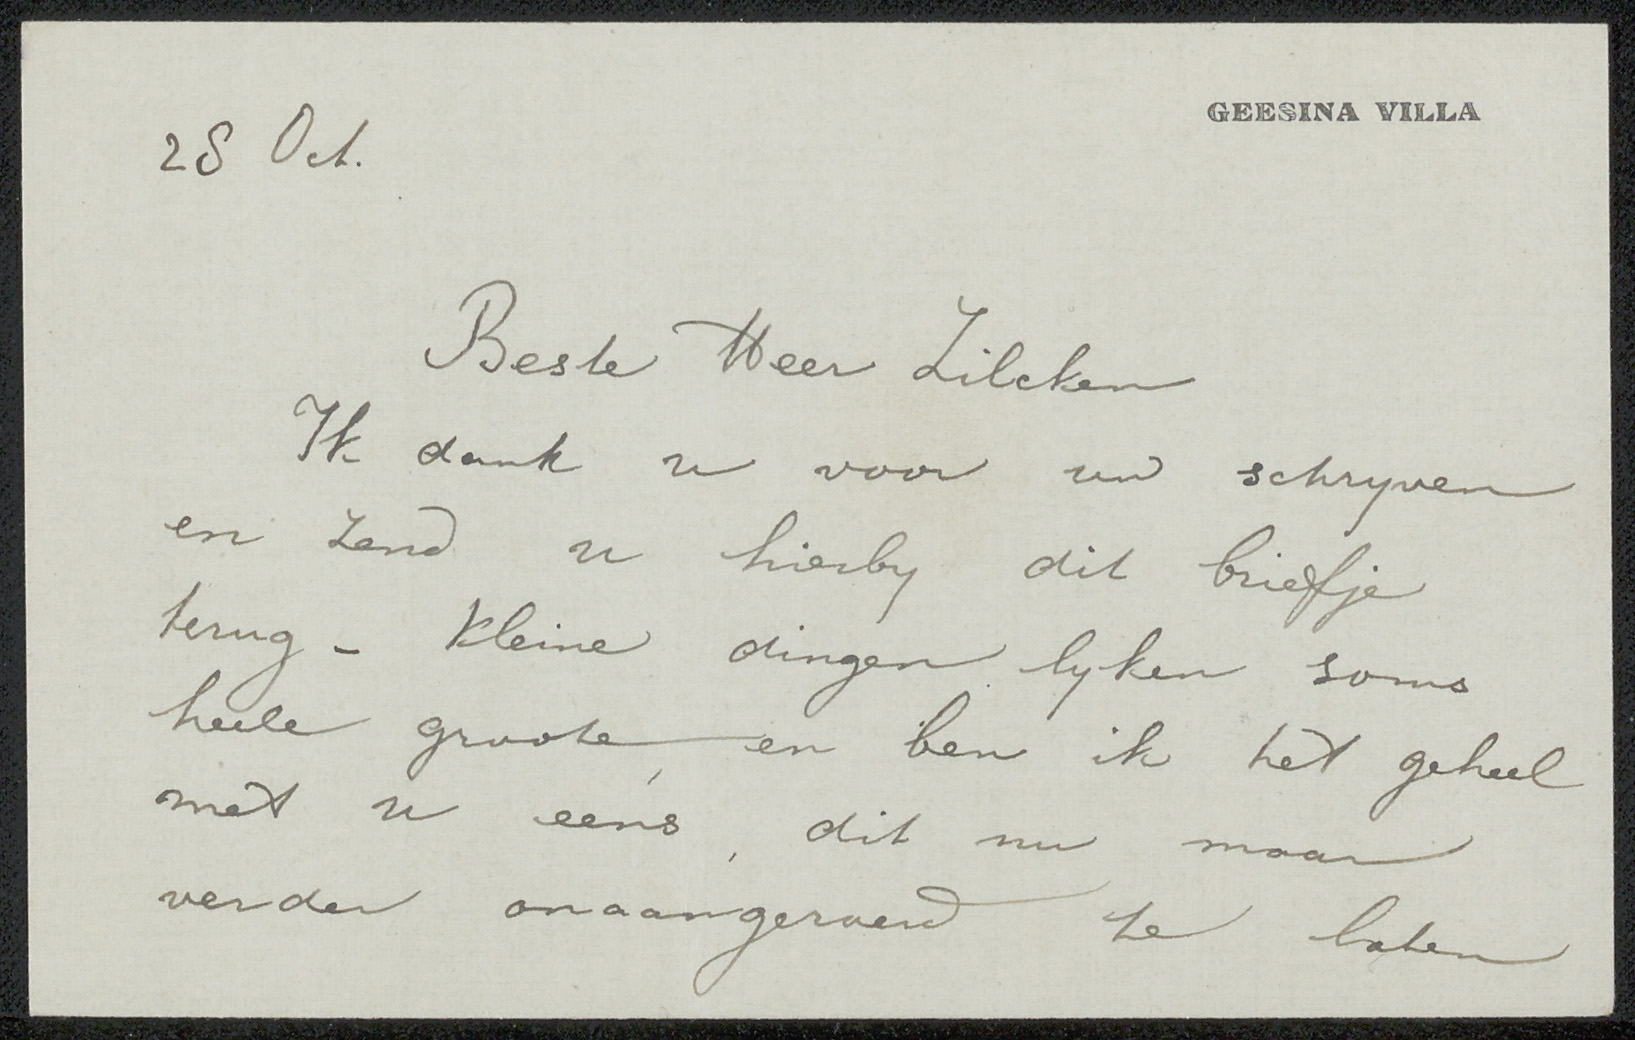 GEESINA VILLA
28 Oct.
Beste Heer Zilcken
Ik dank u voor uw schryven
en zend u hierby dit briefje
terug - kleine dingen lyken soms
heele groote en ben ik het geheel
met u eéns, dit nu maar
verder onaangeroerd te laten